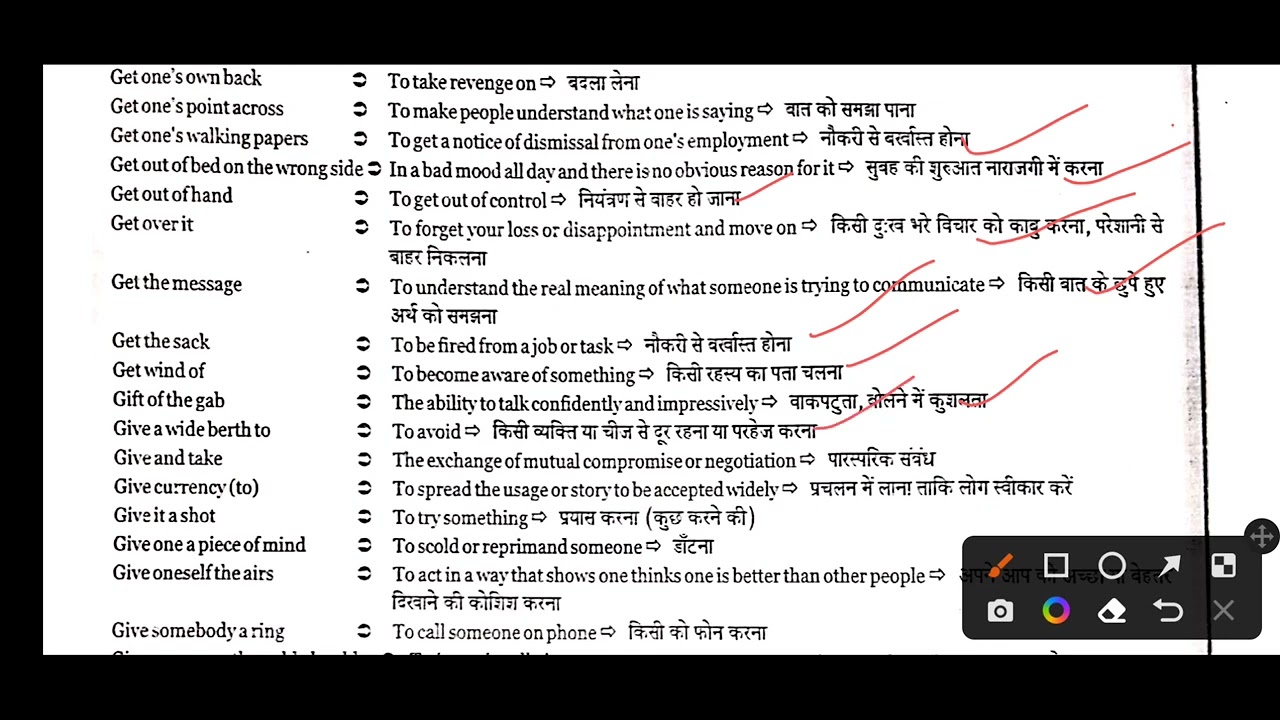 Get one's own back ➲ To take revenge on ⇨ बदला लेना
Get one's point across ➲ To make people understand what one is saying ⇨ बात को समझा पाना
Get one's walking papers ➲ To get a notice of dismissal from one's employment ⇨ नौकरी से बर्खास्त होना
Get out of bed on the wrong side ➲ In a bad mood all day and there is no obvious reason for it ⇨ सुबह की शुरुआत नाराजगी में करना
Get out of hand ➲ To get out of control ⇨ नियंत्रण से बाहर हो जाना
Get over it ➲ To forget your loss or disappointment and move on ⇨ किसी दुःख भरे विचार को काबु करना, परेशानी से
बाहर निकलना
Get the message ➲ To understand the real meaning of what someone is trying to communicate ⇨ किसी बात के छुपे हुए
अर्थ को समझना
Get the sack ➲ To be fired from a job or task ⇨ नौकरी से बर्खास्त होना
Get wind of ➲ To become aware of something ⇨ किसी रहस्य का पता चलना
Gift of the gab ➲ The ability to talk confidently and impressively ⇨ वाकपटुता, बोलने में कुशलता
Give a wide berth to ➲ To avoid ⇨ किसी व्यक्ति या चीज से दूर रहना या परहेज करना
Give and take ➲ The exchange of mutual compromise or negotiation ⇨ पारस्परिक संबंध
Give currency (to) ➲ To spread the usage or story to be accepted widely ⇨ प्रचलन में लाना ताकि लोग स्वीकार करें
Give it a shot ➲ To try something ⇨ प्रयास करना (कुछ करने की)
Give one a piece of mind ➲ To scold or reprimand someone ⇨ डाँटना
Give oneself the airs ➲ To act in a way that shows one thinks one is better than other people ⇨ अपने आप को अच्छा या बेहतर
दिखाने की कोशिश करना
Give somebody a ring ➲ To call someone on phone ⇨ किसी को फोन करना